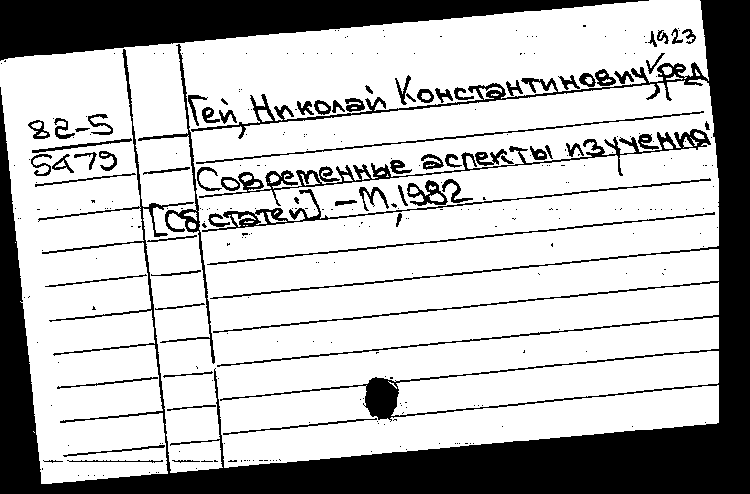 1923
Гей, Николай Константинович, ред
82-5
5479
Современные аспекты изучения
[Сб. статей]. – М., 1982.